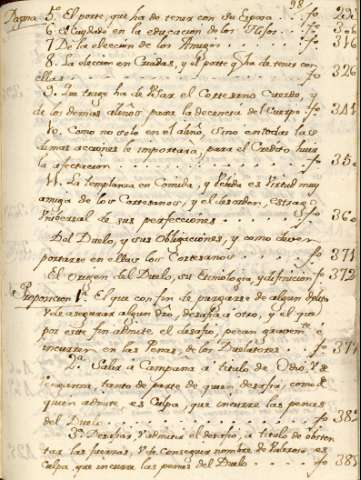 98
Pagina 5º El porte, que ha de tener con su Esposa . . . fo
6 El Cuydado en la educacion de los Hijos . . . fo
7 De la eleccion de los Amigos . . . fo 316
8. La eleccion en Criadas, y el porte q. ha de tener con
ellas . . . fo 326
9. Que trage ha de Usar el Cortesano Cuerdo, y
de los demas aliños, para la decencia del Cuerpo . fo 341
10. Como no solo en el aliño, Sino en todas las
demas acciones le importarà, para el Credito huir
la afectacion . . . fo 35
11. La templanza en Comida, y Vebida es Virtud muy
amiga de los Cortesanos, y el desorden, estrago
Vniversal de sus perfecciones . . . fo 36
Del Duelo, y sus Obligaciones, y como deven
portarse en ellas los Cortesanos . . . fo 371
El Origen del Duelo, su Etimologia, y difinicion fo 372
Proposicion 1ª El que con fin de purgarse de algun delito
Vò asegurar algun dro, desafia a otro, y el que
por este fin admite el desafio, pecan gravemte. è
incurren en las Penas, de los Duelistas . . . fo 37
2ª Salir à Campaña à titulo de Odio, Vè
venganza, tanto de parte de quien desafia, como de
quien admite es Culpa, que incurre las penas
del Duelo . . . fo 382
3. Desafiar, V admitir el desafio, à titulo de obsten
tar las fuerzas, V de conseguir nombre de Valeroso, es
Culpa, que incurre las penas del Duelo . . . fo 385